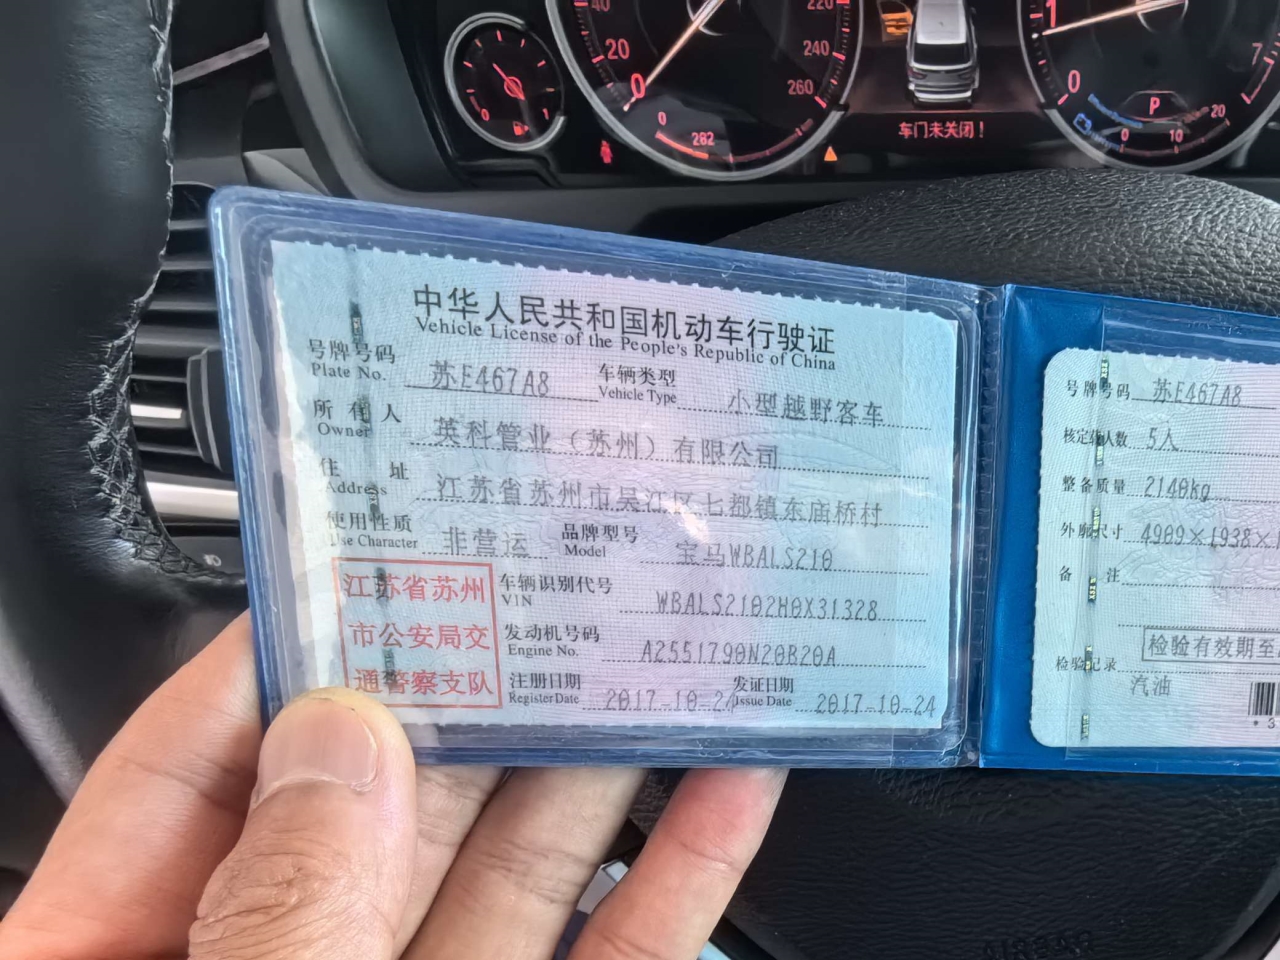 40
20
0
220
240
260
0
282
0
1
车门未关闭！
1
0
7
P
0
10
20
中华人民共和国机动车行驶证
Vehicle License of the People's Republic of China
号牌号码 苏E467A8 车辆类型 小型越野客车
Plate No. Vehicle Type
所有人 英科管业（苏州）有限公司
Owner
住址 江苏省苏州市吴江区七都镇东庙桥村
Address
使用性质 非营运 品牌型号 宝马WBALS210
Use Character Model
江苏省苏州
市公安局交
通警察支队
车辆识别代号 WBALS2102H0X31328
VIN
发动机号码 A2551790N20B20A
Engine No.
注册日期 2017-10-24 发证日期 2017-10-24
Register Date Issue Date
号牌号码 苏E467A8
核定载人数 5人
整备质量 2140kg
外廓尺寸 4909×1938×1
备注
检验有效期至
检验记录
汽油
*3